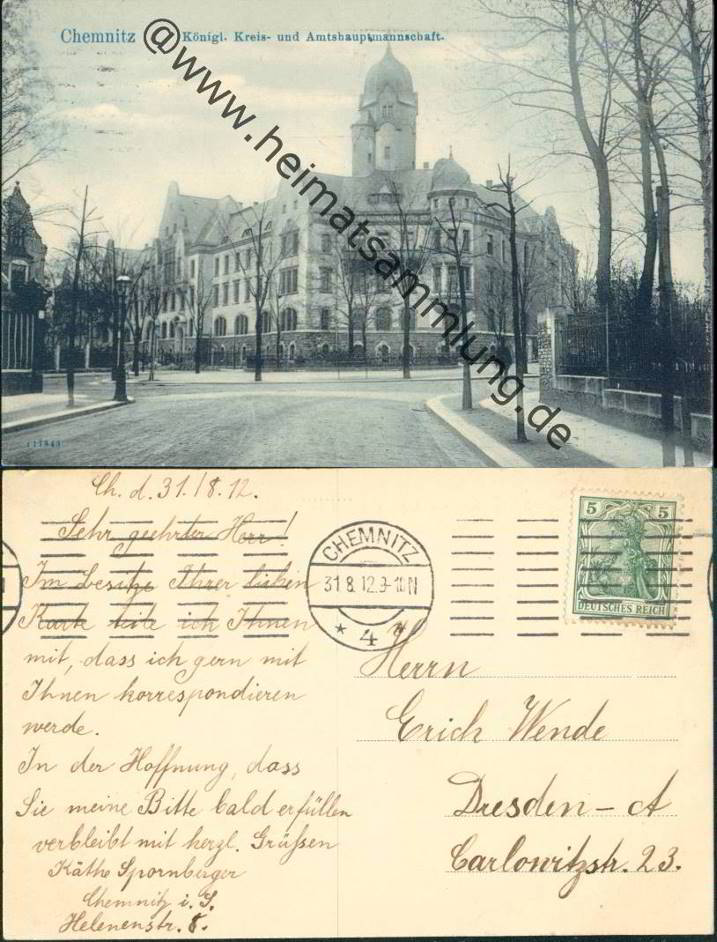 Chemnitz Königl. Kreis- und Amtshauptmannschaft.
@www.heimatsammlung.de
Ch. d. 31./8.12.
Sehr geehrter Herr!
Im Besitze Ihrer lieben
Karte teile ich Ihnen
mit, dass ich gern mit
Ihnen korrespondieren
werde.
In der Hoffnung, dass
Sie meine Bitte bald erfüllen
verbleibt mit herzl. Grüssen
Käthe Spornberger
Chemnitz i. S.
Helenenstr. 8.
CHEMNITZ
31 8.12.9-10N
* 4
5 5
DEUTSCHES REICH
Herrn
Erich Wende
Dresden - A
Carlowitzstr. 23.